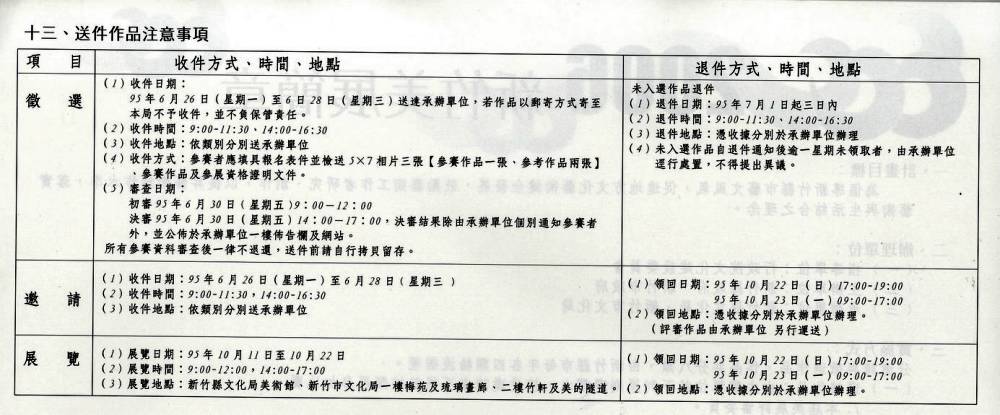 十三、送件作品注意事項
項 目
收件方式、時間、地點
退件方式、時間、地點
徵 選
(1) 收件日期：
95年6月26日(星期一)至6日28日(星期三)送達承辦單位，若作品以郵寄方式寄至
本局不予收件，並不負保管責任。
(2) 收件時間：9:00-11:30、14:00-16:30
(3) 收件地點：依類別分別送承辦單位
(4) 收件方式：參賽者應填具報名表件並檢送5×7相片三張【參賽作品一張、參考作品兩張】
、參賽作品及參展資格證明文件。
(5) 審查日期：
初審95年6月30日(星期五)9：00-12：00
決審95年6月30日(星期五)14：00-17：00，決審結果除由承辦單位個別通知參賽者
外，並公佈於承辦單位一樓佈告欄及網站。
所有參賽資料審查後一律不退還，送件前請自行拷貝留存。
未入選作品退件
(1) 退件日期：95年7月1日起三日內
(2) 退件時間：9:00-11:30、14:00-16:30
(3) 退件地點：憑收據分別於承辦單位辦理
(4) 未入選作品自退件通知後逾一星期未領取者，由承辦單位
逕行處置，不得提出異議。
邀 請
(1) 收件日期：95年6月26日(星期一)至6月28日(星期三)
(2) 收件時間：9:00-11:30，14:00-16:30
(3) 收件地點：依類別分別送承辦單位
(1) 領回日期：95年10月22日(日)17:00-19:00
95年10月23日(一)09:00-17:00
(2) 領回地點：憑收據分別於承辦單位辦理。
(評審作品由承辦單位 另行運送)
展 覽
(1) 展覽日期：95年10月11日至10月22日
(2) 展覽時間：9:00-12:00，14:00-17:00
(3) 展覽地點：新竹縣文化局美術館、新竹市文化局一樓梅苑及琉璃畫廊、二樓竹軒及美的隧道。
(1) 領回日期：95年10月22日(日)17:00-19:00
95年10月23日(一)09:00-17:00
(2) 領回地點：憑收據分別於承辦單位辦理。